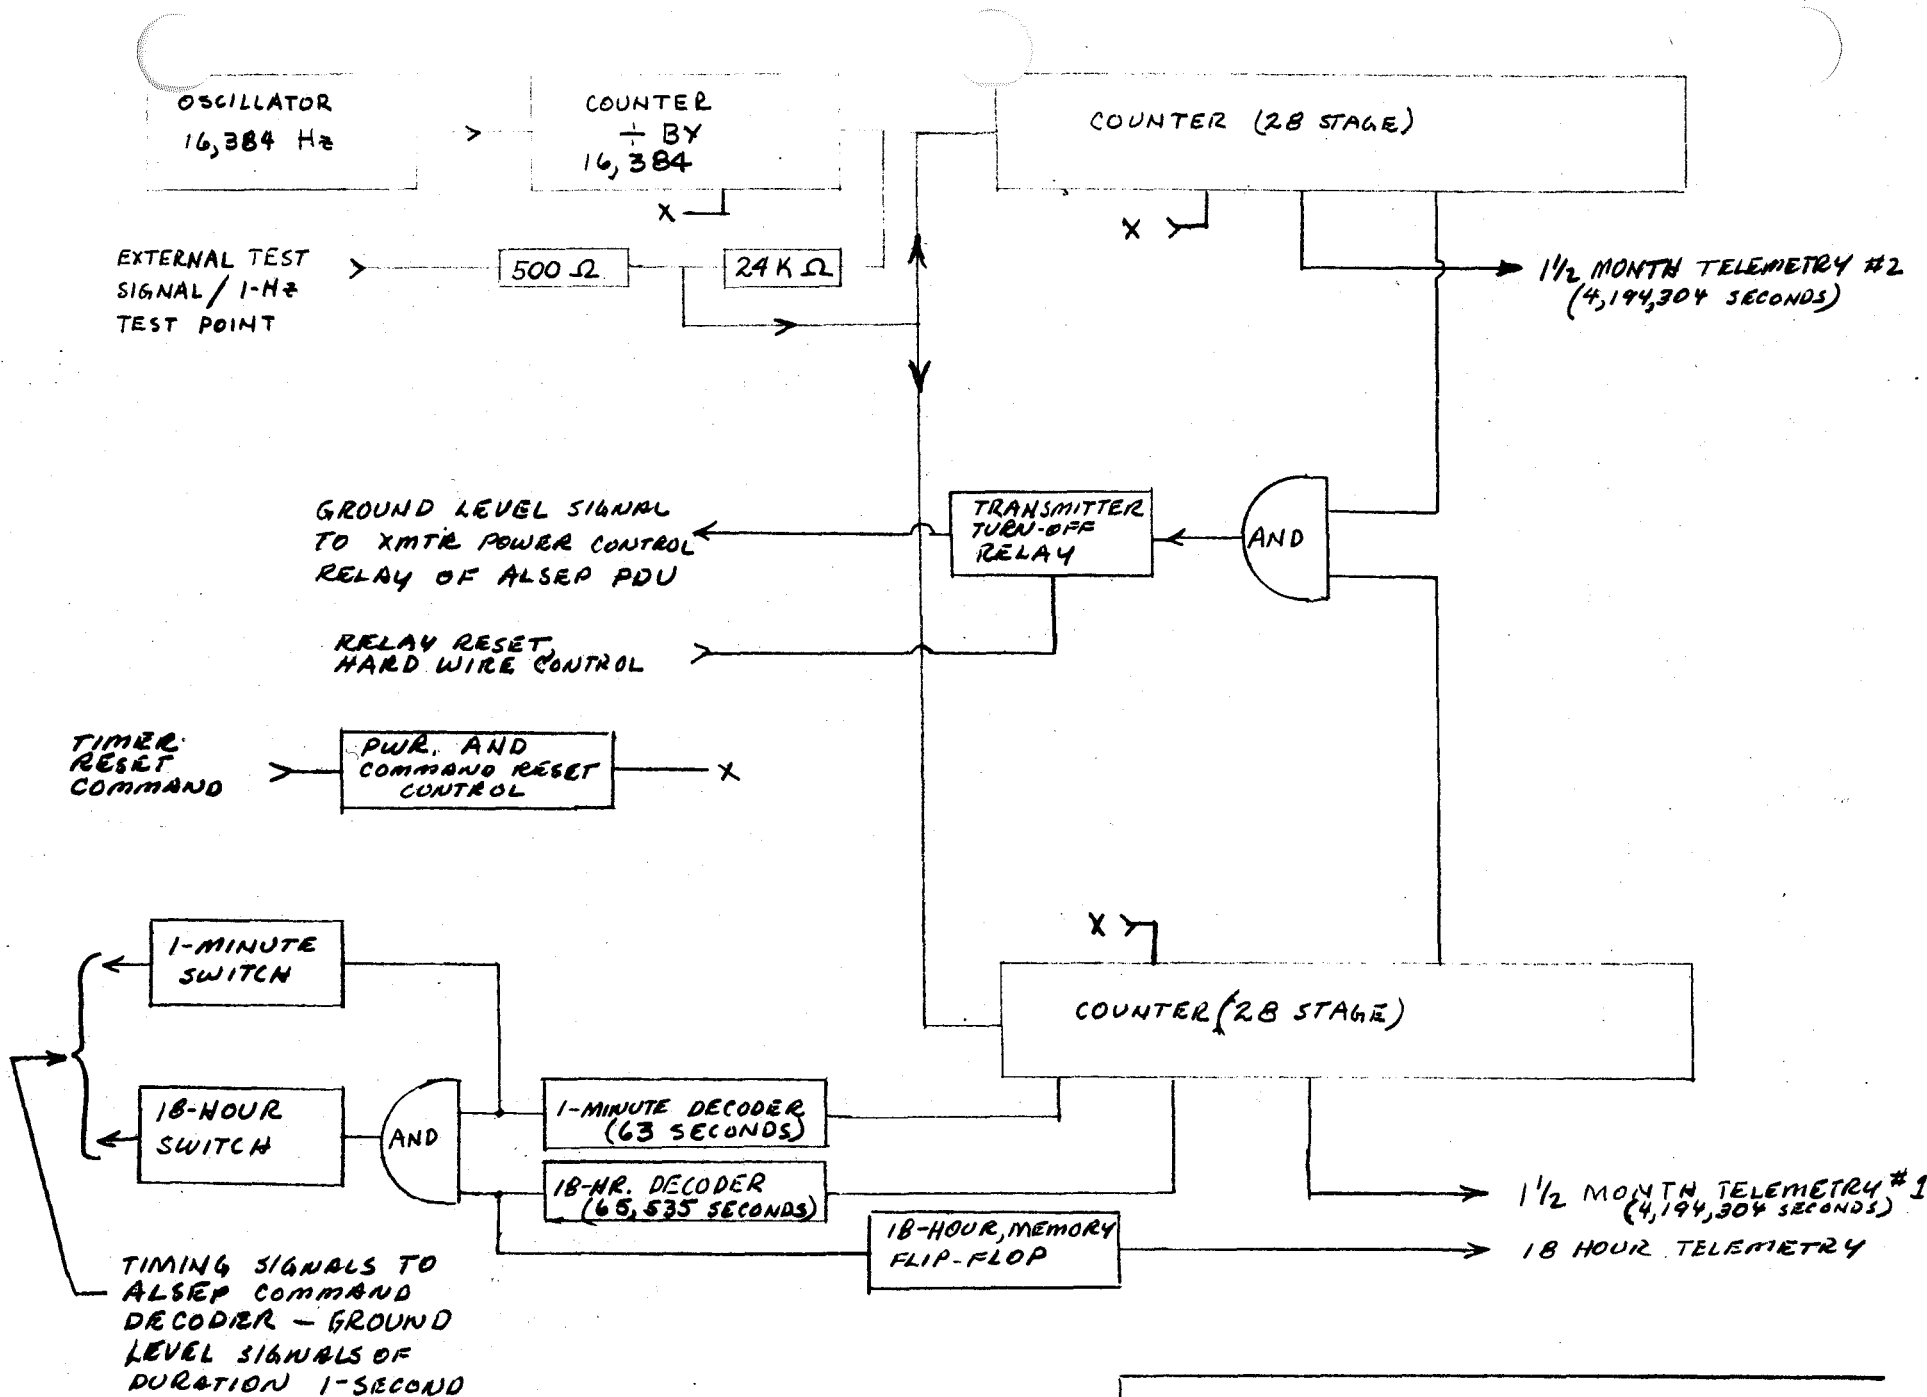 OSCILLATOR
16,384 Hz
COUNTER
÷ BY
16,384
COUNTER (28 STAGE)
X
X
EXTERNAL TEST
SIGNAL / 1-Hz
TEST POINT
500 Ω
24K Ω
1 1/2 MONTH TELEMETRY #2
(4,194,304 SECONDS)
GROUND LEVEL SIGNAL
TO XMTR POWER CONTROL
RELAY OF ALSEP PDU
TRANSMITTER
TURN-OFF
RELAY
AND
RELAY RESET,
HARD WIRE CONTROL
TIMER
RESET
COMMAND
PWR. AND
COMMAND RESET
CONTROL
X
X
1-MINUTE
SWITCH
COUNTER (28 STAGE)
18-HOUR
SWITCH
AND
1-MINUTE DECODER
(63 SECONDS)
18-HR. DECODER
(65,535 SECONDS)
1 1/2 MONTH TELEMETRY #1
(4,194,304 SECONDS)
18-HOUR, MEMORY
FLIP-FLOP
18 HOUR TELEMETRY
TIMING SIGNALS TO
ALSEP COMMAND
DECODER - GROUND
LEVEL SIGNALS OF
DURATION 1-SECOND